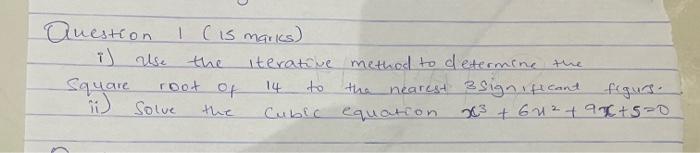 Question 1 (15 marks)
i) Use the iterative method to determine the
square root of 14 to the nearest 3 significant figurs.
ii) Solve the cubic equation x³ + 6x² + 9x + 5 = 0